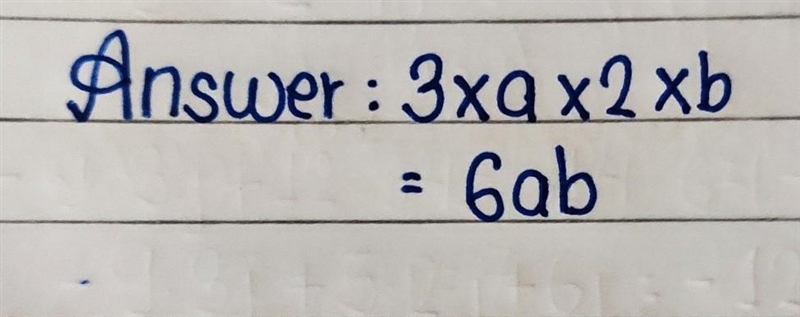 Answer : 3×a×2×b
= 6ab